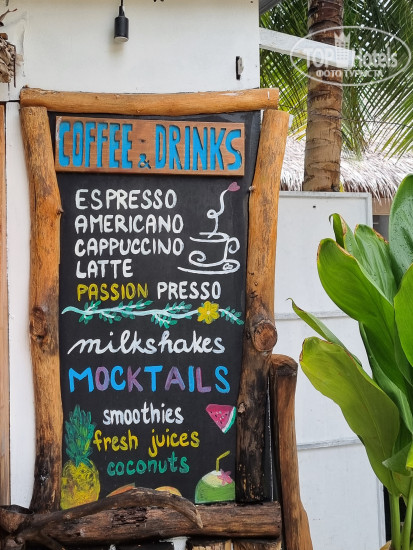 TopHotels
ФОТО ТУРИСТА
COFFEE & DRINKS
ESPRESSO
AMERICANO
CAPPUCCINO
LATTE
PASSION PRESSO
milkshakes
MOCKTAILS
smoothies
fresh juices
coconuts